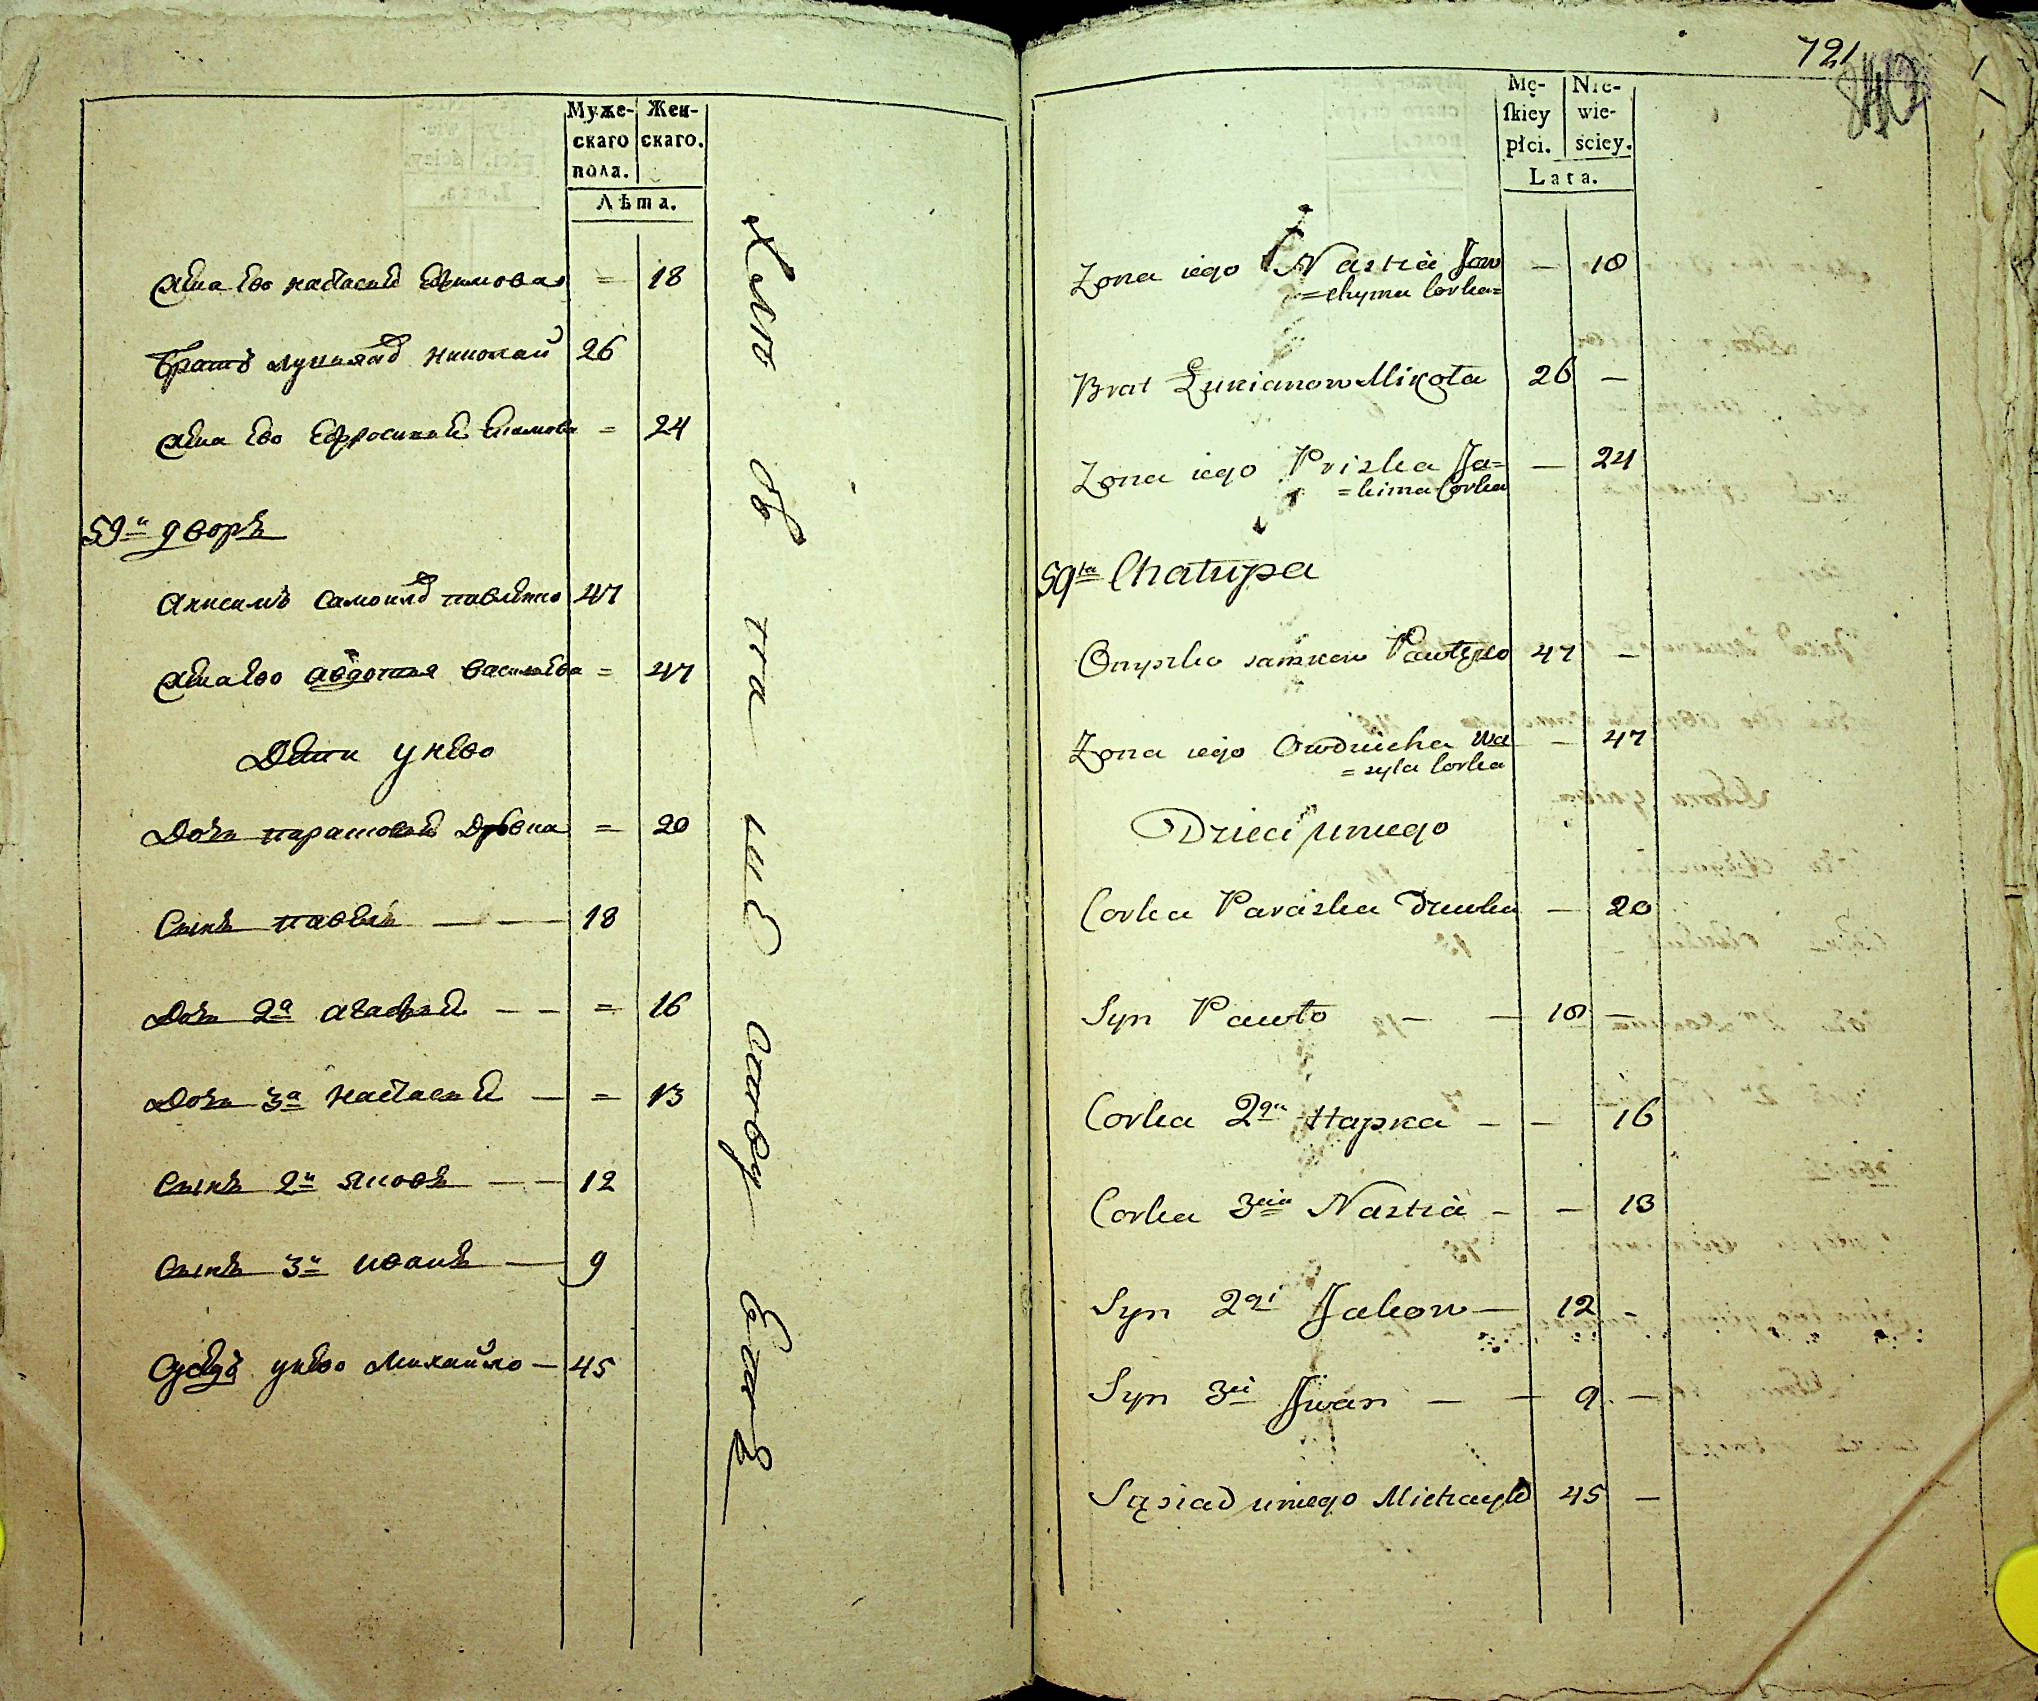 Муже-
скаго
пола.
Жен-
скаго.
Лѣта.
жена ево настасия Ефимова = 18
братъ лукиянов николай 26
жена ево Ефросиния Екимова = 24
59й дворъ
Анисимъ самоилов павленко 47
жена ево авдотия василиева = 47
Дети у нево
дочь парасковия девка = 20
сынъ павелъ — — 18
дочь 2я агафия — — = 16
дочь 3я настасия — = 13
сынъ 2й яковъ — — 12
сынъ 3й иванъ — 9
суседъ унево михайло — 45
721
Mę-
skiey
płci.
Nie-
wie-
ściey.
Lata.
Zona iego Nastia Jow — 18
=chyma Corka=
Brat Łukianow Mikoła 26 —
Zona iego Priska Ja= — 24
=kima Corka
59ta Chałupa
Onyszko samuow Pawłenko 47 —
Zona iego Owdiucha Wa — 47
= syla Corka
Dzieci uniego
Corka Paraska Diwka — 20
Syn Pawło — — 18 —
Corka 2ga Hapka — — 16
Corka 3cia Nastia — — 13
Syn 2gi Jakow — 12 -
Syn 3ci Jwan — — 9 —
Sąsiad uniego Michayło 45 —